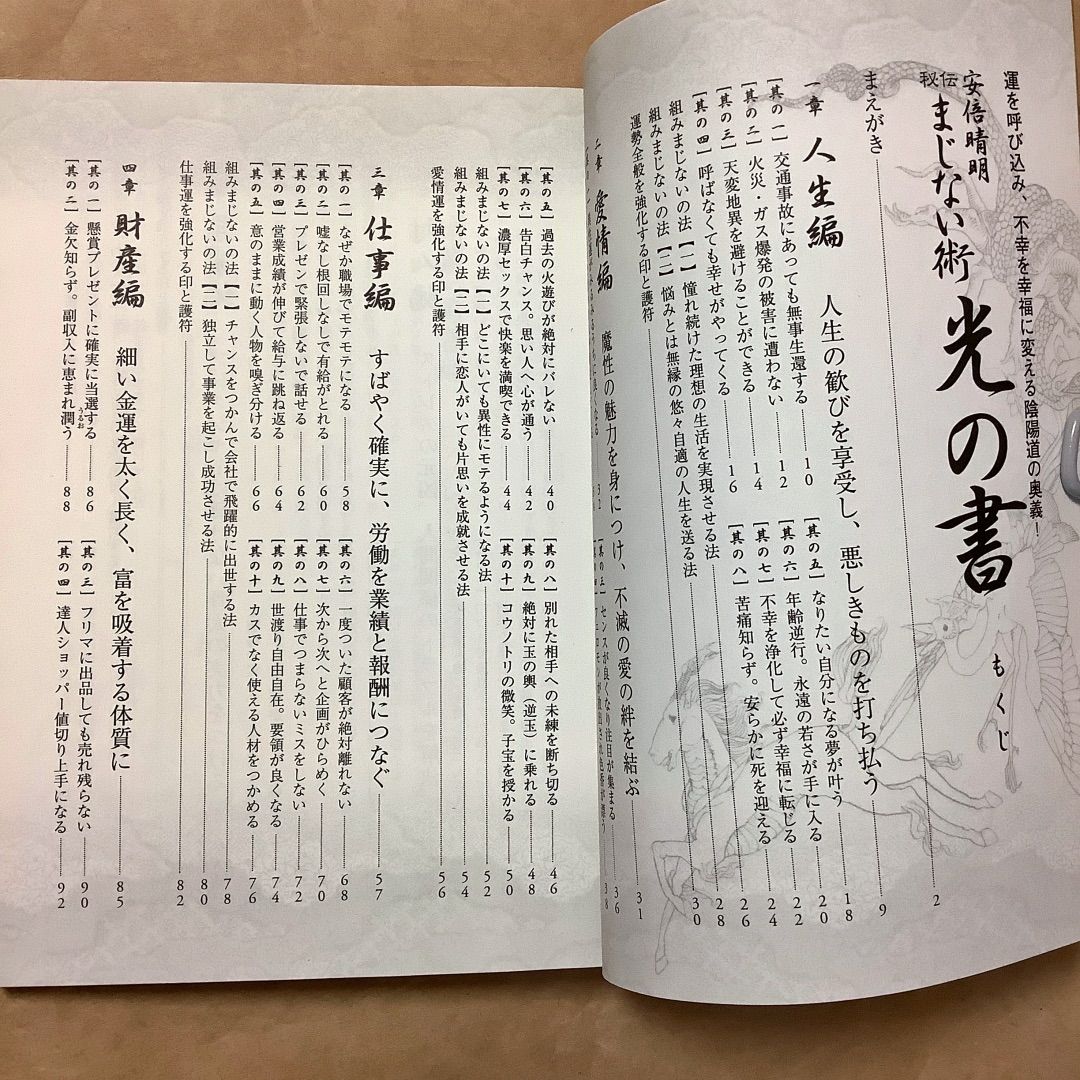 運を呼び込み、不幸を幸福に変える陰陽道の奥義！
秘伝 安倍晴明 まじない術 光の書
もくじ
まえがき 2
一章 人生編 人生の歓びを享受し、悪しきものを打ち払う 9
[其の一] 交通事故にあっても無事生還する 10
[其の二] 火災・ガス爆発の被害に遭わない 12
[其の三] 天変地異を避けることができる 14
[其の四] 呼ばなくても幸せがやってくる 16
[其の五] なりたい自分になる夢が叶う 18
[其の六] 年齢逆行。永遠の若さが手に入る 20
[其の七] 不幸を浄化して必ず幸福に転じる 22
[其の八] 苦痛知らず。安らかに死を迎える 24
組みまじないの法【一】 憧れ続けた理想の生活を実現させる法 26
組みまじないの法【二】 悩みとは無縁の悠々自適の人生を送る法 28
運勢全般を強化する印と護符 30
二章 愛情編 魔性の魅力を身につけ、不滅の愛の絆を結ぶ 31
32
[其の三] センスが良くなり注目が集まる 36
38
[其の五] 過去の火遊びが絶対にバレない 40
[其の六] 告白チャンス。思い人へ心が通う 42
[其の七] 濃厚セックスで快楽を満喫できる 44
[其の八] 別れた相手への未練を断ち切る 46
[其の九] 絶対に玉の輿（逆玉）に乗れる 48
[其の十] コウノトリの微笑。子宝を授かる 50
組みまじないの法【一】 どこにいても異性にモテるようになる法 52
組みまじないの法【二】 相手に恋人がいても片思いを成就させる法 54
愛情運を強化する印と護符 56
三章 仕事編 すばやく確実に、労働を業績と報酬につなぐ 57
[其の一] なぜか職場でモテモテになる 58
[其の二] 嘘なし根回しなしで有給がとれる 60
[其の三] プレゼンで緊張しないで話せる 62
[其の四] 営業成績が伸びて給与に跳ね返る 64
[其の五] 意のままに動く人物を嗅ぎ分ける 66
[其の六] 一度ついた顧客が絶対離れない 68
[其の七] 次から次へと企画がひらめく 70
[其の八] 仕事でつまらないミスをしない 72
[其の九] 世渡り自由自在。要領が良くなる 74
[其の十] カスでなく使える人材をつかめる 76
組みまじないの法【一】 チャンスをつかんで会社で飛躍的に出世する法 78
組みまじないの法【二】 独立して事業を起こし成功させる法 80
仕事運を強化する印と護符 82
四章 財産編 細い金運を太く長く、富を吸着する体質に 85
[其の一] 懸賞プレゼントに確実に当選する 86
[其の二] 金欠知らず。副収入に恵まれ潤う 88
うるお
[其の三] フリマに出品しても売れ残らない 90
[其の四] 達人ショッパー値切り上手になる 92